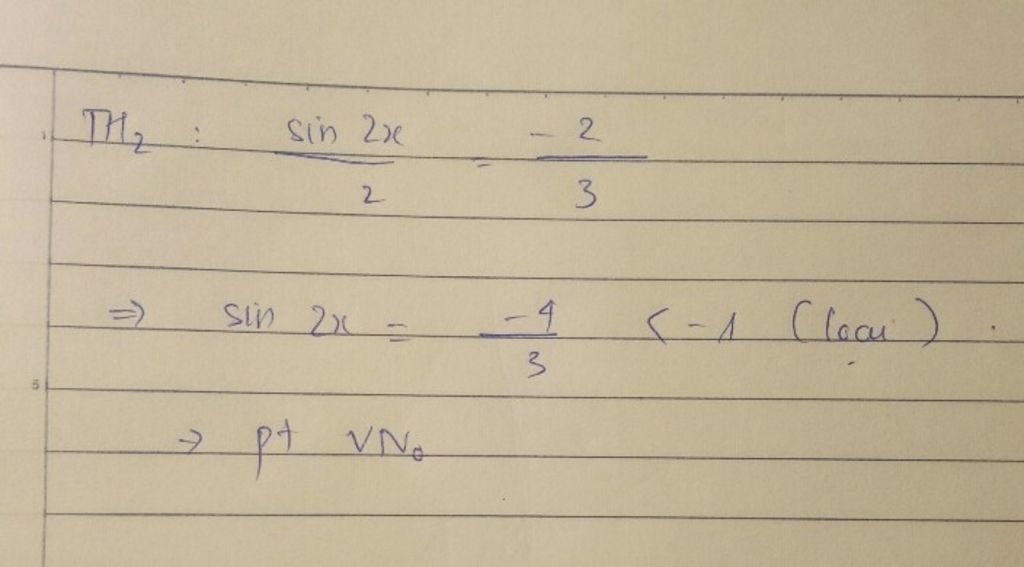 TH₂ : sin 2x / 2 = -2 / 3
⇒ sin 2x = -4 / 3 < -1 (loại).
→ pt VN₀
5